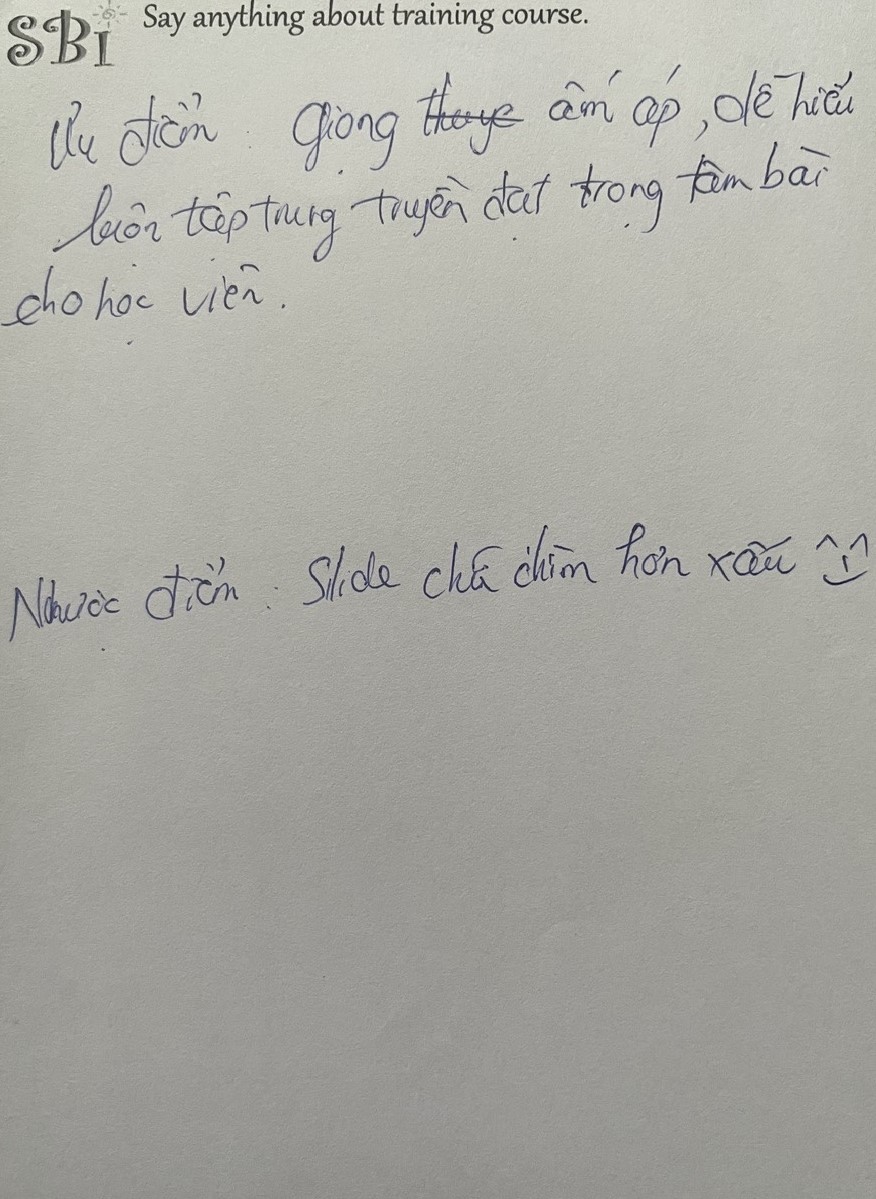 SBI Say anything about training course.
Ưu điểm : Giọng ấm áp, dễ hiểu
luôn tập trung truyền đạt trọng tâm bài
cho học viên.
Nhược điểm : Slide chữ chìm hơn xấu ^_^